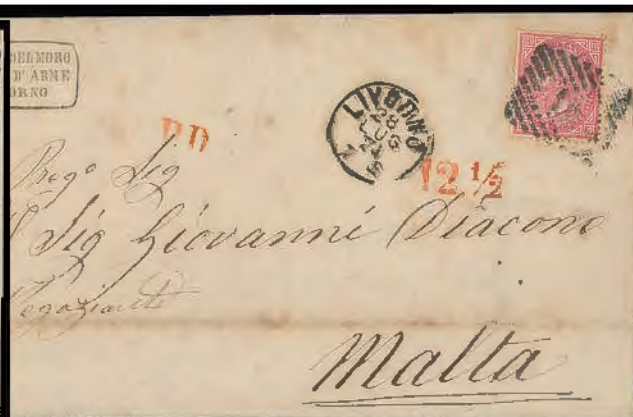 DELMORO
D'ARME
ORNO
PD
LIVORNO
28
LUG
74
12 ½
Preg° Sig
Sig Giovanni Diacono
Negoziante
Malta